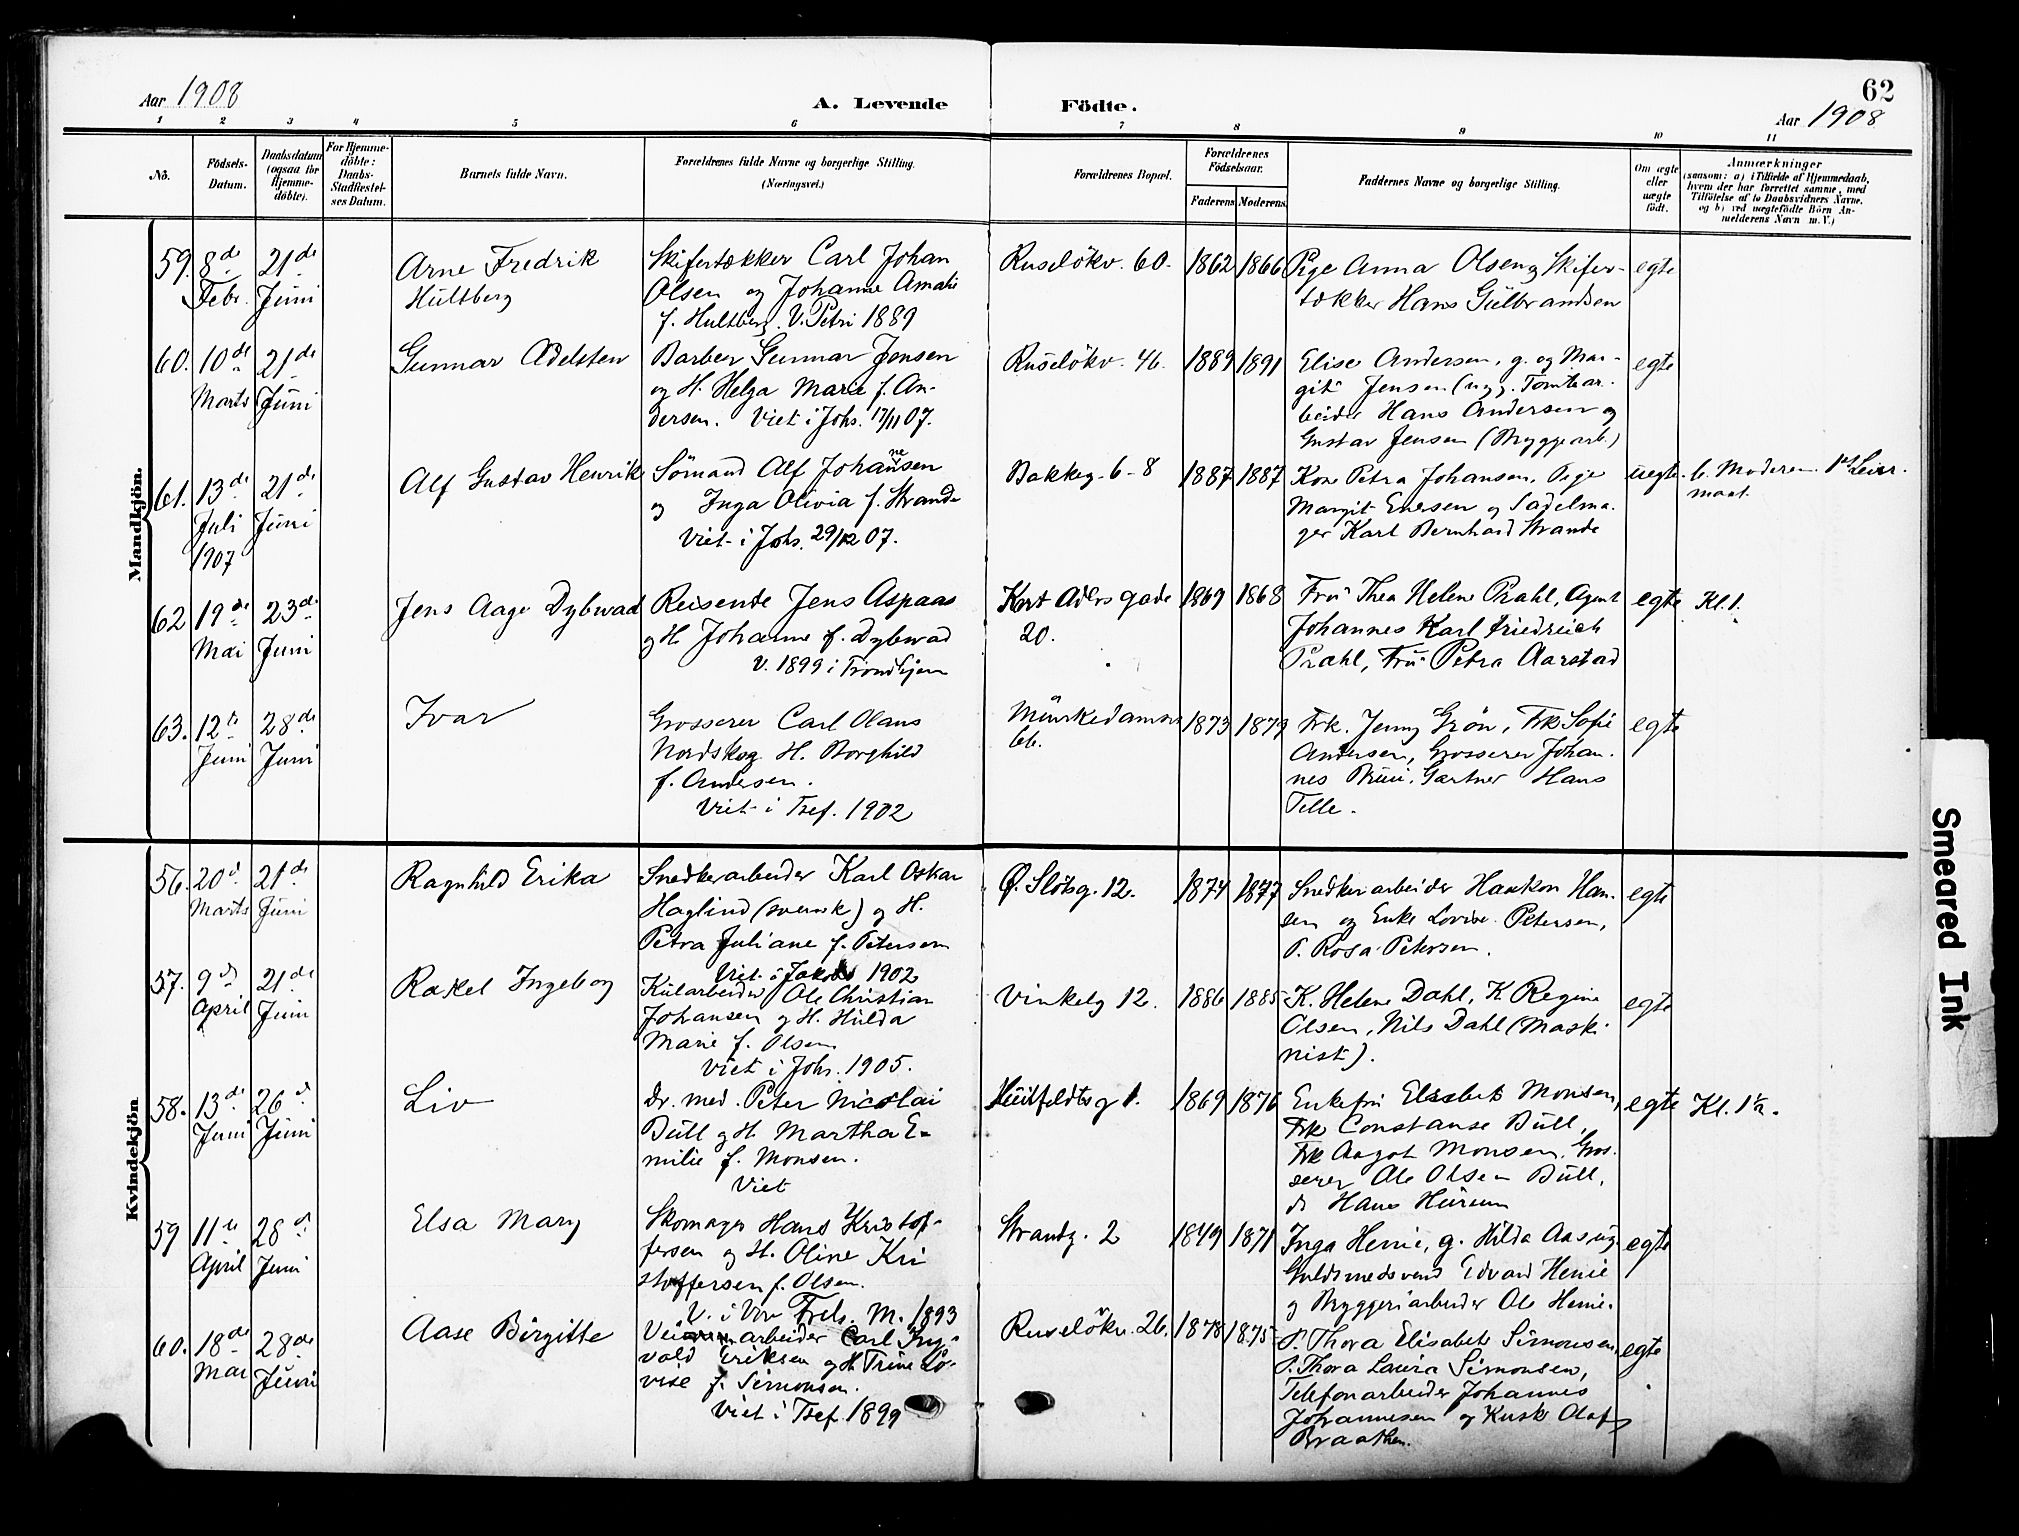 62
Aar 1908
A. Levende
Födte.
Aar 1908
1 2 3 4 5 6 7 8 9 10 11
Nô.
Födsels-
Datum.
Daabsdatum
(ogsaa for
Hjemme-
döbte).
For Hjemme-
döbte:
Daabs-
Stadfæstel-
ses Datum.
Barnets fulde Navn.
Forældrenes fulde Navne og borgerlige Stilling.
(Næringsvei.)
Forældrenes Bopæl.
Forældrenes
Födselsaar.
Faderens Moderens
Faddernes Navne og borgerlige Stilling.
Om ægte
eller
uægte
födt.
Anmærkninger
(saasom: a) i Tilfælde af Hjemmedaab,
hvem der har forrettet samme, med
Tilföielse af to Daabsvidners Navne,
og b) ved uægtefödte Börn An-
melderens Navn m. V.)
Mandkjön.
59. 8de
Febr.
21de
Juni
Arne Fredrik
Hultberg
Skifertækker Carl Johan
Olsen og Johanne Amalie
f. Hultberg. V. Petri 1889
Ruselökv. 60.
1862 1866
Pige Anna Olsen og Skifer-
tækker Hans Gulbrandsen
egte
60. 10de
Marts
21de
Juni
Gunnar Adelsten
Barber Gunnar Jensen
og H. Helga Marie f. An-
dersen. Viet i Johs. 17/11 07.
Ruselökv. 46.
1889 1891
Elise Andersen, g. og Mar-
git Jensen (ug). Tomtear-
beider Hans Andersen og
Gustav Jensen (Bryggearb.)
egte
61. 13de
Juli
1907
21de
Juni
Alf Gustav Henrik
Sömand Alf Johannesen
og Inga Olivia f. Strande
Viet i Johs. 29/12 07.
Bakkeg. 6-8
1887 1887
Kone Petra Johansen, Pige
Margit Enesen og Sadelma-
ger Karl Bernhard Strande
uegte
b. Moderen
62 19de
Mai
23de
Juni
Jens Aage Dybwad
Reisende Jens Aspaas
og H. Johanne f. Dybwad
V. 1899 i Trondhjem
Kort Adlers gade
20.
1869 1868
Fru Thea Helene Prahl, Agent
Johannes Karl Friedreich
Prahl, Fru Petra Aarstad
egte
Kl. 1.
63. 12te
Juni
28de
Juni
Ivar
Grosserer Carl Olaus
Nordskog H. Borghild
f. Andersen.
Viet i Tref. 1902
Munkedamsv
66.
1873 1879
Frk. Jenny Grön, Frk Sofie
Andersen, Grosserer Johan-
nes Bruu, Gartner Hans
Telle.
egte
Kvindekjön
56. 20d
Marts
21de
Juni
Ragnhild Erika
Snedkerarbeider Karl Oskar
Haglind (svensk) og H.
Petra Juliane f. Petersen
Viet i Jakobs 1902
Ø. Slotsg. 12.
1874 1877
Snedkerarbeider Haakon Han-
sen og Enke Lovise Petersen,
P. Rosa Petersen.
egte
57. 9d
April
21de
Juni
Rakel Ingeborg
Kularbeider Ole Christian
Johansen og H. Hulda
Marie f. Olsen
Viet i Johs. 1905.
Vinkelg 12.
1886 1885
K. Helene Dahl, K Regine
Olsen, Nils Dahl (Mask-
nist).
egte
58. 13de
Juni
26d
Juni
Liv
Dr. med. Peter Nicolai
Bull og H. Martha E-
milie f. Monsen.
Viet
Huitfeldtsg 1.
1869 1876
Enkefru Elisabeth Monsen,
Frk Constanse Bull,
Frk Aagot Monsen, Gros-
serer Ole Olsen Bull,
do Hans Hurum
egte
Kl. 1½.
59 11te
April
28d
Juni
Elsa Mary
Skomager Hans Kristof-
fersen og H. Oline Kri
stoffersen f. Olsen.
V. i Vor Frels. M. 1893
Strandg. 2
1849 1871
Inga Henie, g. Hilda Aas ug.
Guldsmedsvend Edvard Henie
og Bryggeriarbeider Ole Henie.
egte
60. 18de
Mai
28de
Juni
Aase Birgitte
Veiarbeider Carl Ing-
vald Eriksen og H Trine Lo-
vise f. Simonsen.
Viet i Tref. 1899
Ruselökv. 26.
1878 1875
P. Thora Elisabeth Simonsen,
P. Thora Laura Simonsen,
Telefonarbeider Johannes
Johannesen og Kusk Olaf
Braathen.
egte
Smeared Ink